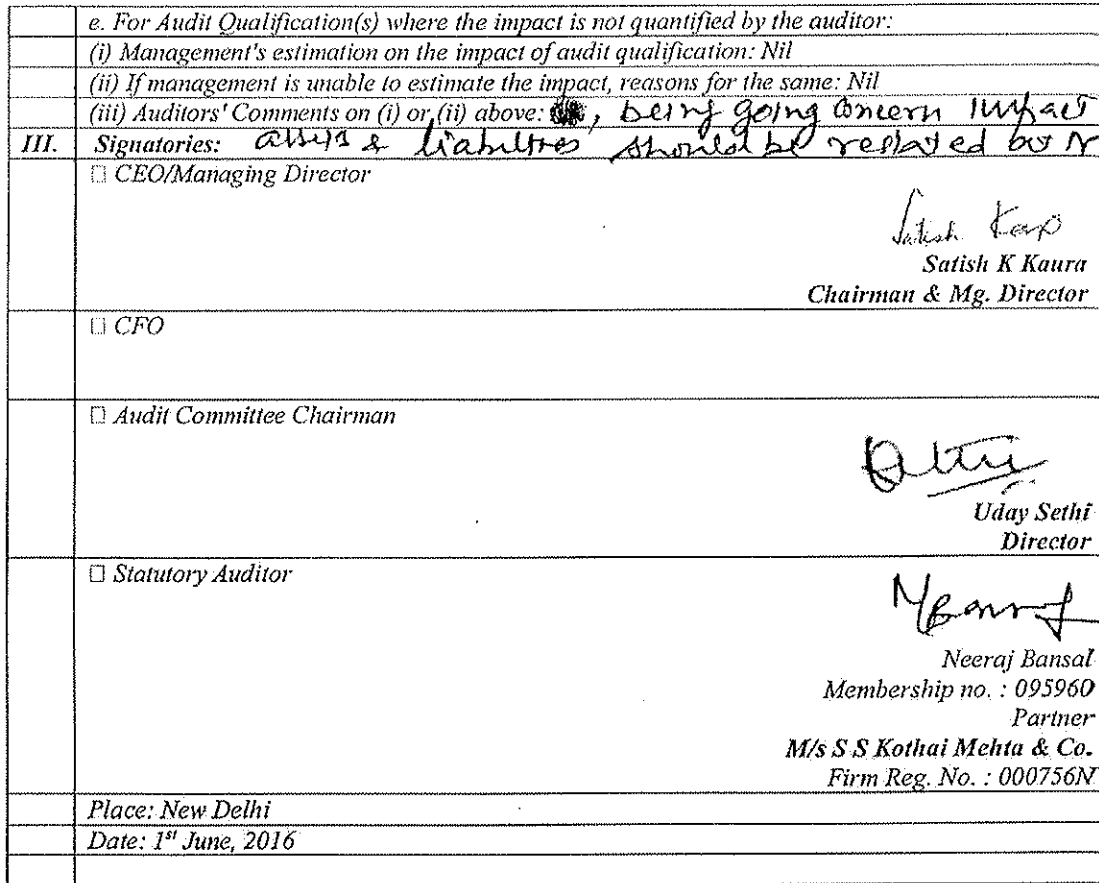 e. For Audit Qualification(s) where the impact is not quantified by the auditor:
(i) Management's estimation on the impact of audit qualification: Nil
(ii) If management is unable to estimate the impact, reasons for the same: Nil
(iii) Auditors' Comments on (i) or (ii) above: , being going concern impact
III. Signatories: assets & liabilities should be restated but
CEO/Managing Director
Satish
Satish K Kaura
Chairman & Mg. Director
CFO
Audit Committee Chairman
Uday Sethi
Director
Statutory Auditor
Neeraj Bansal
Membership no. : 095960
Partner
M/s S S Kothai Mehta & Co.
Firm Reg. No. : 000756N
Place: New Delhi
Date: 1st June, 2016